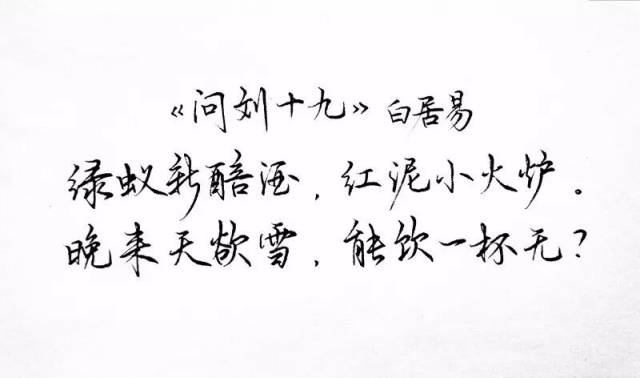 《问刘十九》白居易
绿蚁新醅酒，红泥小火炉。
晚来天欲雪，能饮一杯无？